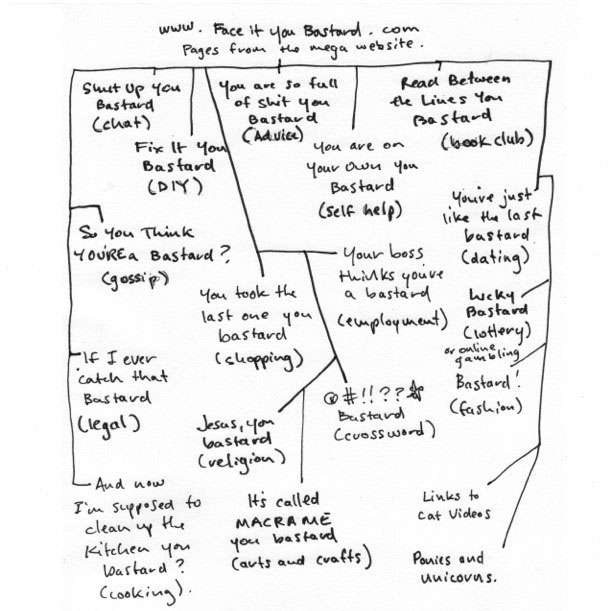 www. Face it you Bastard. com
Pages from the mega website.
Shut Up you
Bastard
(chat)
Fix It You
Bastard
(DIY)
You are so full
of shit you
Bastard
(Advice)
You are on
your own you
Bastard
(self help)
Read Between
the Lines You
Bastard
(book club)
So You Think
YOU'RE a Bastard?
(gossip)
You took the
last one you
bastard
(shopping)
Your boss
thinks you're
a bastard
(employment)
You're just
like the last
bastard
(dating)
Lucky
Bastard
(lottery)
or online
gambling
Bastard!
(fashion)
If I ever
catch that
Bastard
(legal)
Jesus, you
bastard
(religion)
@#!!??*
Bastard
(crossword)
And now
I'm supposed to
clean up the
Kitchen you
bastard?
(cooking).
It's called
MACRAME
you bastard
(arts and crafts)
Links to
Cat Videos
Ponies and
unicorns.